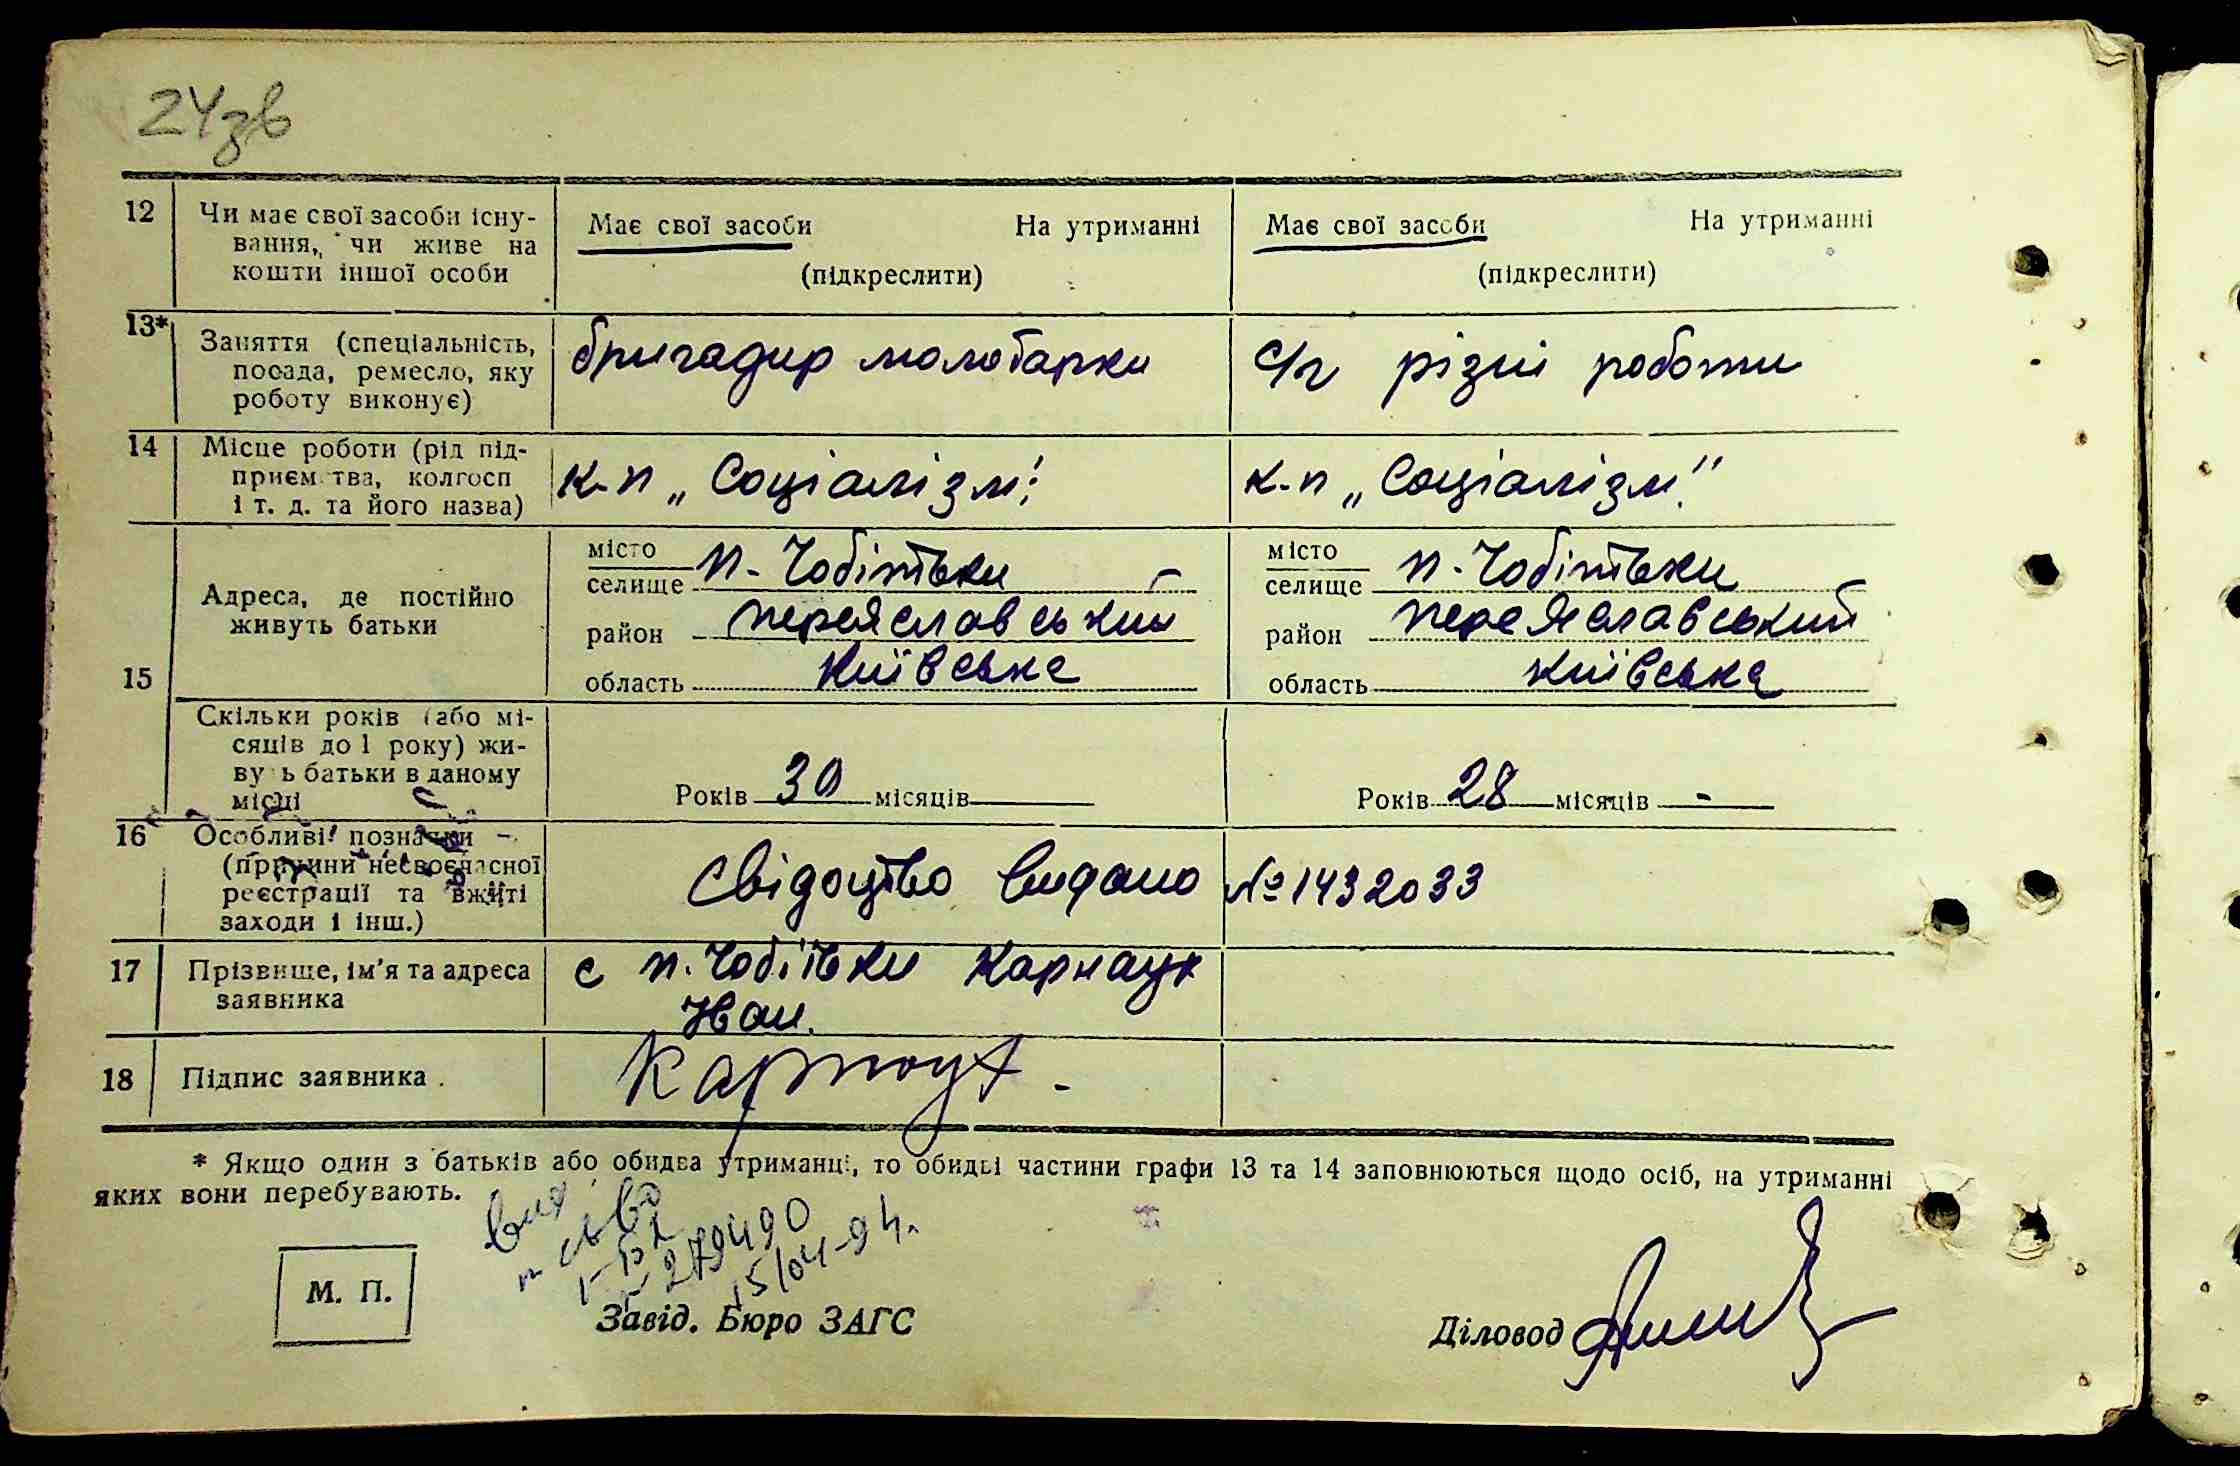 24зв
12 Чи має свої засоби існу-
вання, чи живе на
кошти іншої особи
Має свої засоби На утриманні
(підкреслити)
Має свої засоби На утриманні
(підкреслити)
13* Заняття (спеціальність,
посада, ремесло, яку
роботу виконує)
бригадир молотарки
с/г різні роботи
14 Місце роботи (рід під-
приємства, колгосп
і т. д. та його назва)
к-п „Соціалізм"
к-п „Соціалізм"
15 Адреса, де постійно
живуть батьки
місто
селище п-Чобітьки
район переяславський
область київське
місто
селище п-Чобітьки
район переяславський
область київська
Скільки років (або мі-
сяців до 1 року) жи-
вуть батьки в даному
місці
Років 30 місяців
Років 28 місяців -
16 Особливі позначки
(причини несвоєчасної
реєстрації та вжиті
заходи і інш.)
Свідоцтво видано №1432033
17 Прізвище, ім'я та адреса
заявника
с п.Чобітьки Карнаух
Іван.
18 Підпис заявника.
Карнаух
* Якщо один з батьків або обидва утриманці, то обидві частини графи 13 та 14 заповнюються щодо осіб, на утриманні
яких вони перебувають.
279490
15/04-94.
М. П.
Завід. Бюро ЗАГС
Діловод